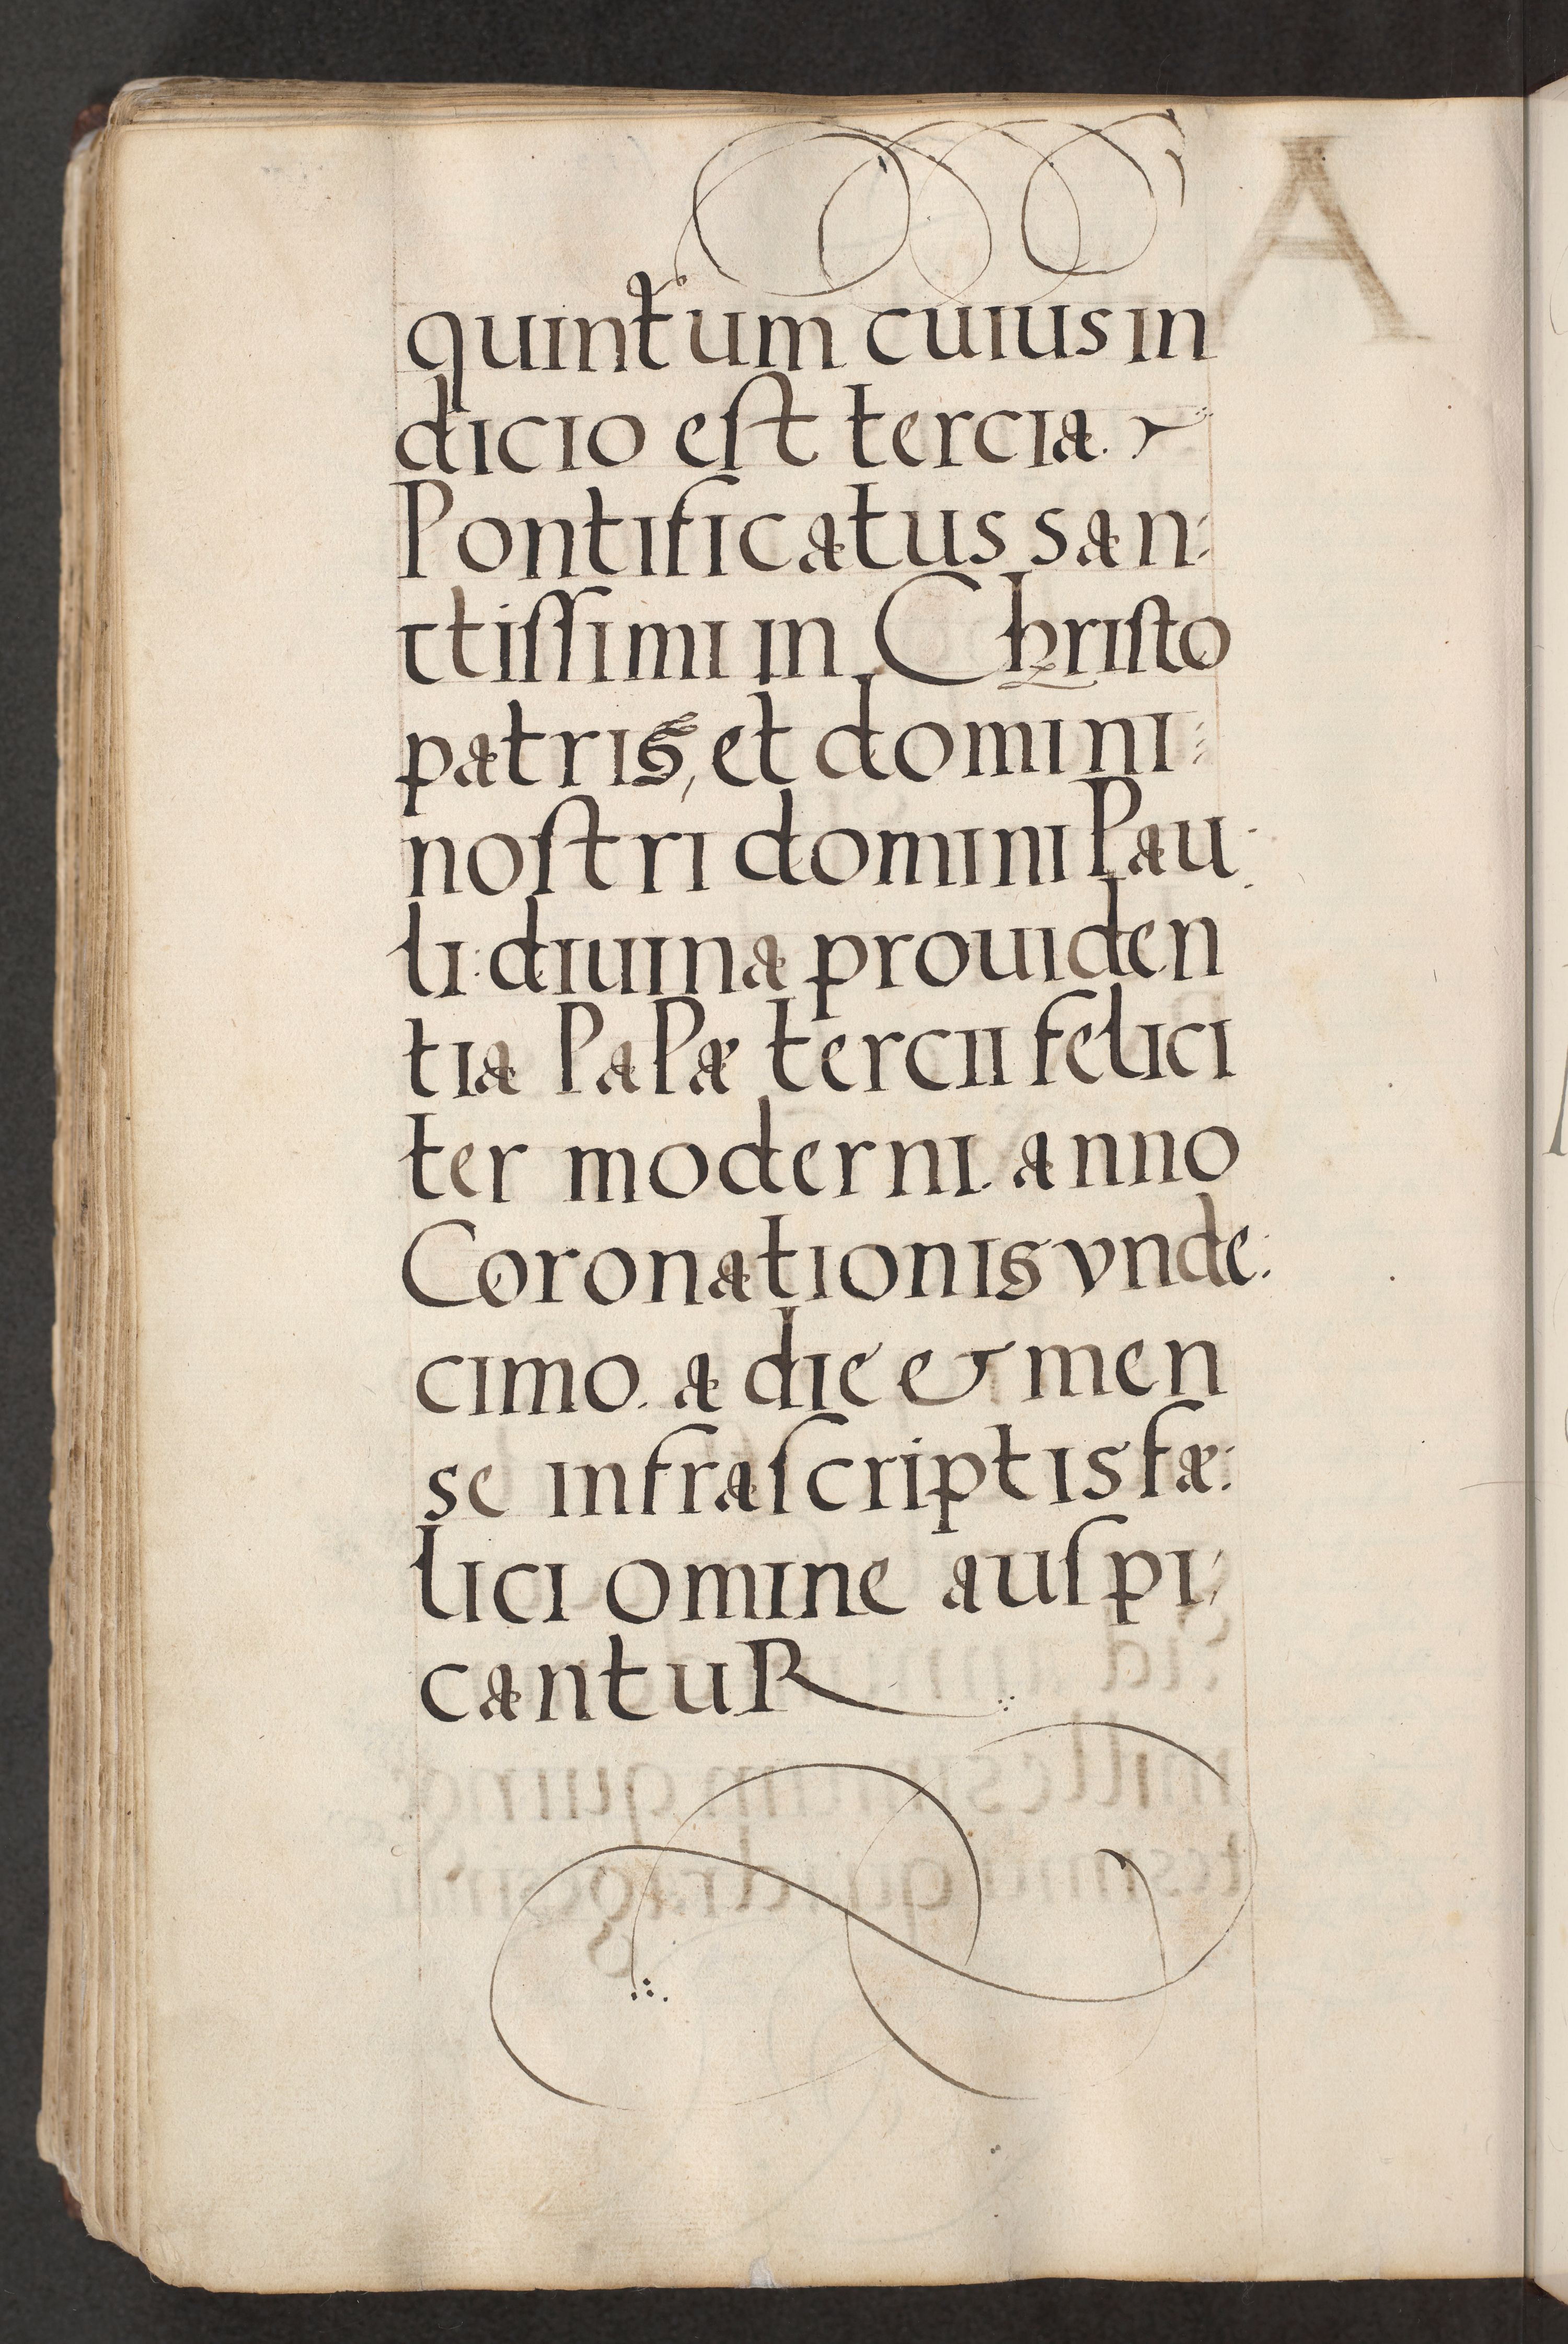 quintum cuius in
dicio eſt tercia.
Pontificatus san:
ctiſſimi in Chriſto
patris, et domini:
noſtri domini Pau:
li: diuina prouiden
tia PaPæ tercii felici
ter moderni. anno
Coronationis vnde:
cimo. a die & men
se infraſcriptis fæ:
lici omine auſpi:
cantuR